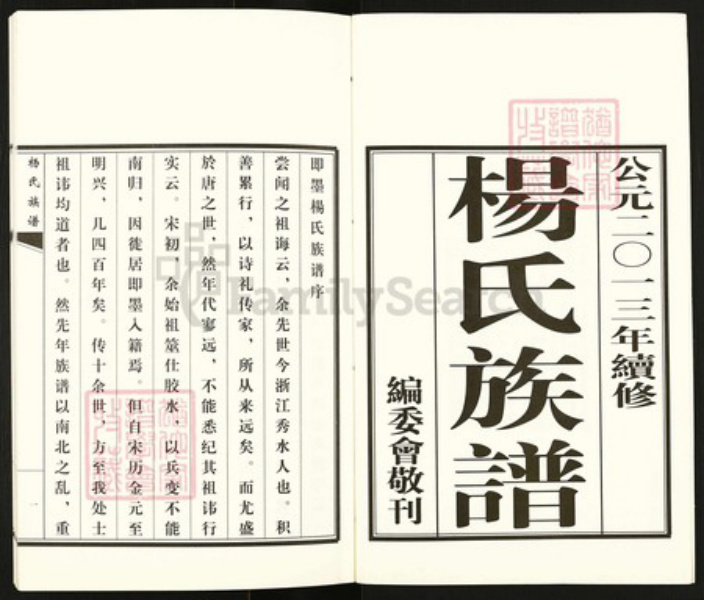 公元二〇一三年續修
楊氏族譜
編委會敬刊
即墨楊氏族谱序
尝闻之祖诲云，余先世今浙江秀水人也。积
善累行，以诗礼传家，所从来远矣。而尤盛
於唐之世，然年代寥远，不能悉纪其祖讳行
实云。宋初，余始祖筮仕胶水，以兵变不能
南归，因徙居即墨入籍焉。但自宋历金元至
明兴，几四百年矣。传十余世，方至我处士
祖讳均道者也。然先年族谱以南北之乱，重
楊氏族谱
一
FamilySearch